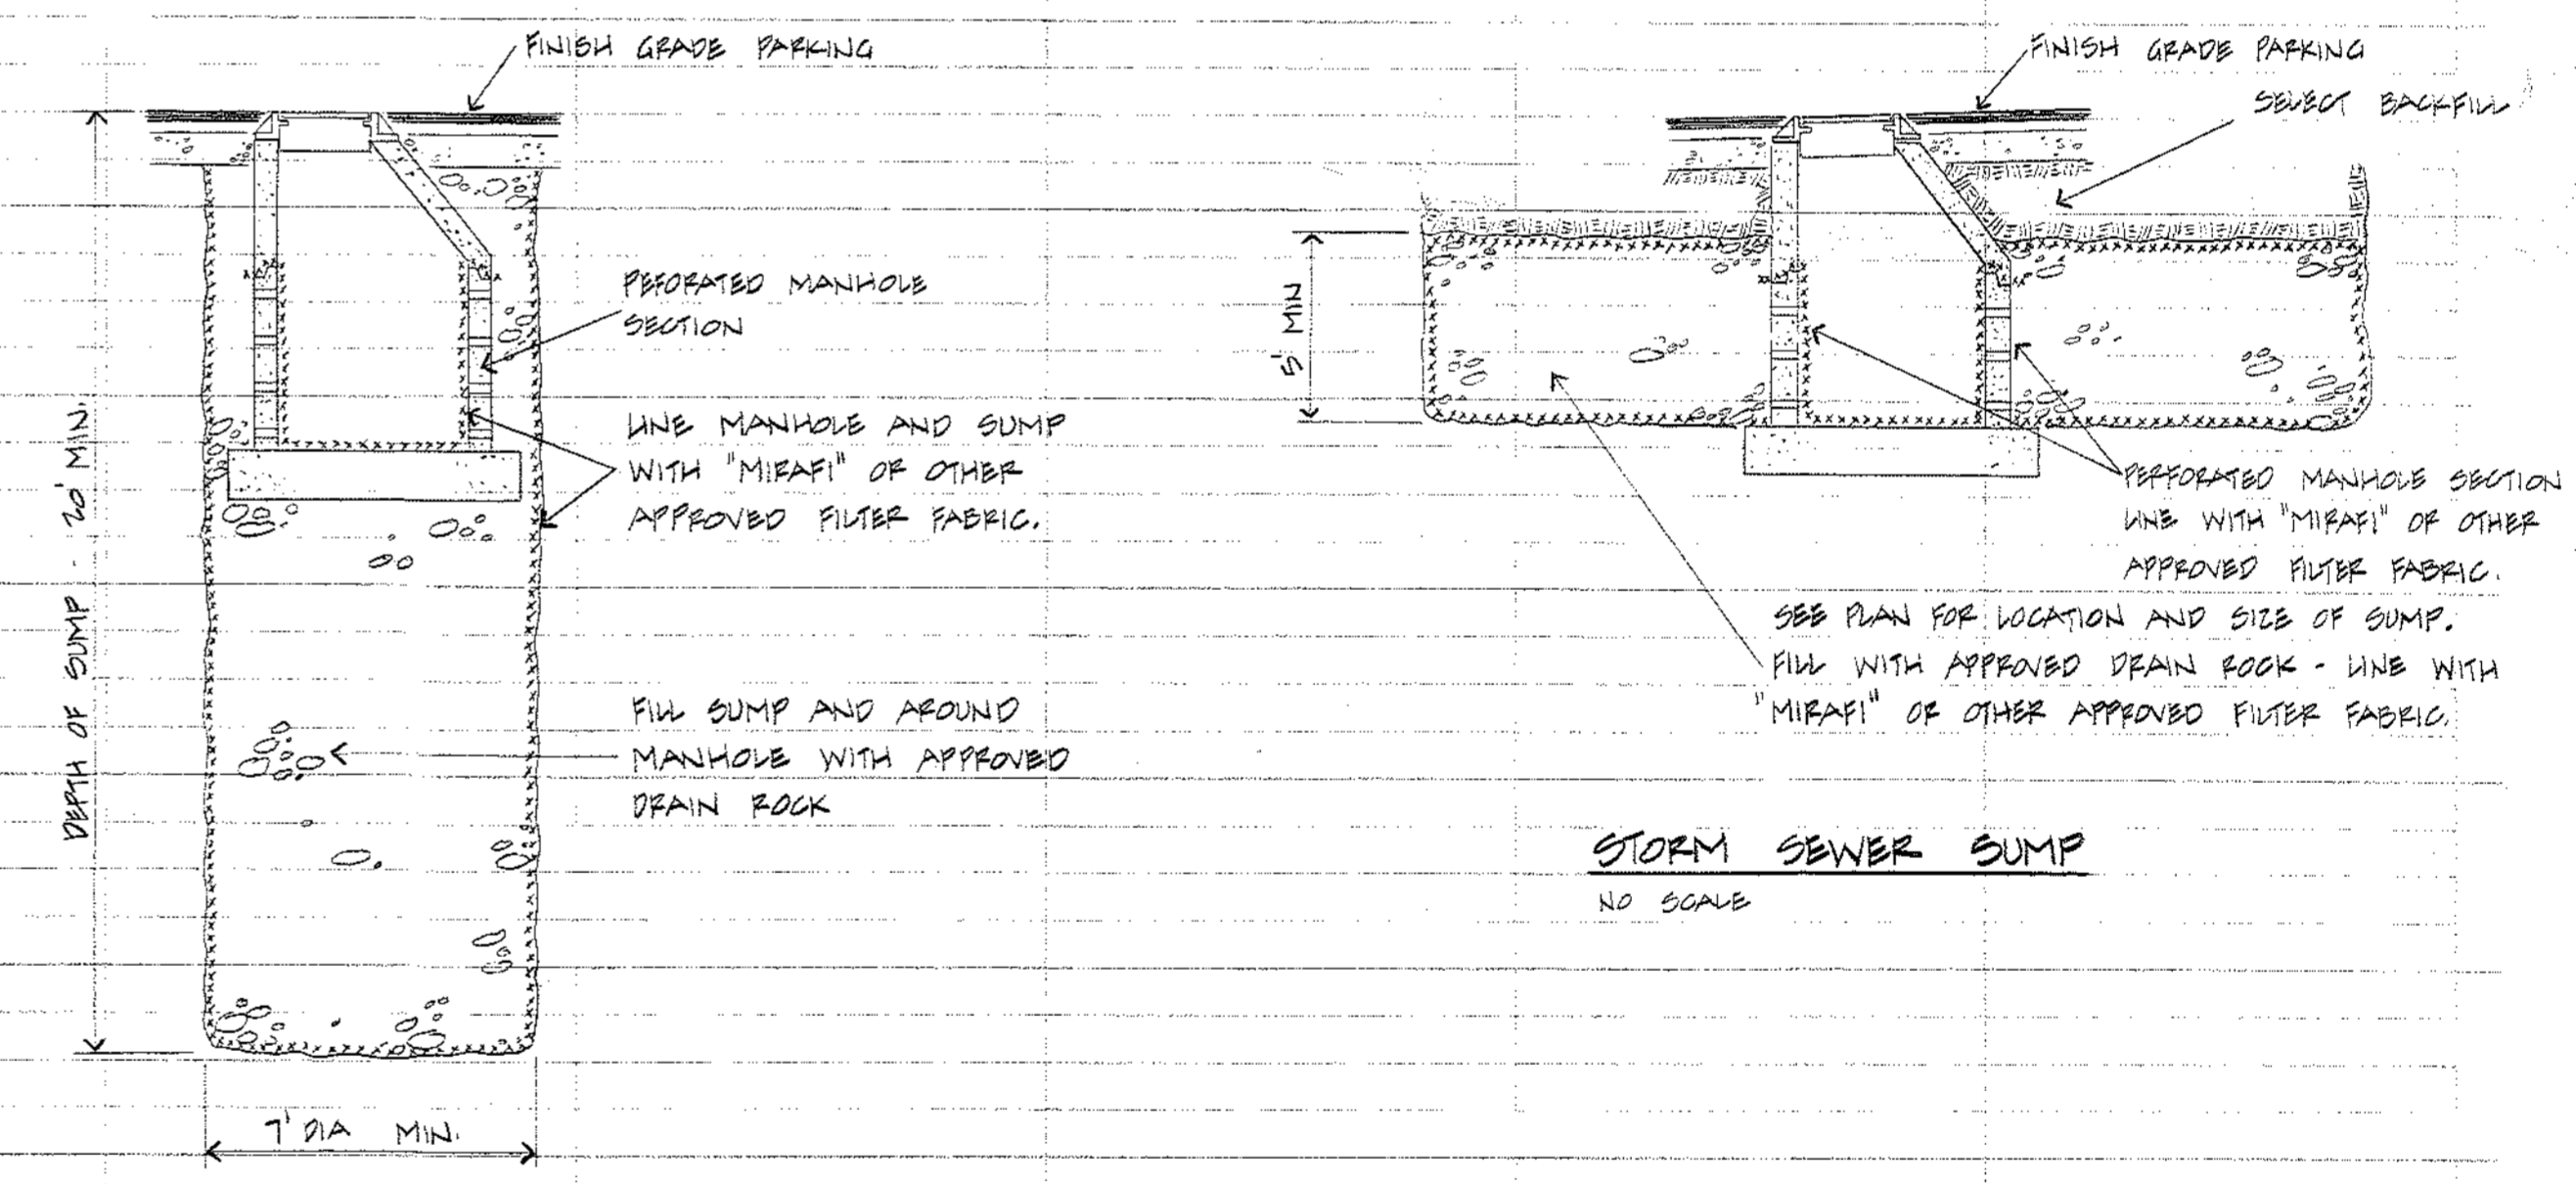 FINISH GRADE PARKING
PEFORATED MANHOLE
SECTION
LINE MANHOLE AND SUMP
WITH "MIRAFI" OR OTHER
APPROVED FILTER FABRIC.
FILL SUMP AND AROUND
MANHOLE WITH APPROVED
DRAIN ROCK
DEPTH OF SUMP - 20' MIN.
7' DIA MIN.
FINISH GRADE PARKING
SELECT BACKFILL
5' MIN
PERFORATED MANHOLE SECTION
LINE WITH "MIRAFI" OR OTHER
APPROVED FILTER FABRIC.
SEE PLAN FOR LOCATION AND SIZE OF SUMP.
FILL WITH APPROVED DRAIN ROCK - LINE WITH
"MIRAFI" OR OTHER APPROVED FILTER FABRIC.
STORM SEWER SUMP
NO SCALE